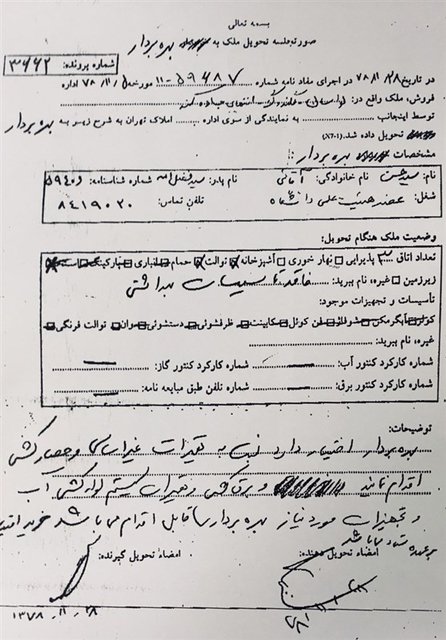 بسمه تعالی
صورتجلسه تحویل ملک به بهره بردار
شماره پرونده: ۳۶۶۲
در تاریخ ۷۸/۱۱/۲۸ در اجرای مفاد نامه شماره ۵۹۶۸۷-۱۱ مورخه ۷۸/۱۱/ اداره
فروش، ملک واقع در:
توسط اینجانب به نمایندگی از سوی اداره املاک تهران به شرح زیر به بهره بردار
تحویل داده شد. (X7-1)
مشخصات بهره بردار:
نام: نام خانوادگی: آقائی نام پدر: شماره شناسنامه: ۵۹۴۰۶
شغل: عضو هیئت علمی دانشگاه تلفن تماس: ۸۴۱۹۰۲۰
وضعیت ملک هنگام تحویل:
تعداد اتاق پذیرایی نهار خوری آشپزخانه توالت حمام انباری پارکینگ
زیرزمین غیره، نام ببرید: فاقد تاسیسات بهداشتی
تأسیسات و تجهیزات موجود:
کولر آبگرمکن شوفاژ فن کوئل کابینت ظرفشوئی دستشوئی وان توالت فرنگی
غیره، نام ببرید:
شماره کارکرد کنتور آب: شماره کارکرد کنتور گاز:
شماره کارکرد کنتور برق: شماره تلفن طبق مبایعه نامه:
توضیحات:
بهره بردار اختیار دارد نسبت به تعمیرات غیر اساسی و حصار کشی
اقدام نماید و برق کشی و تعمیرات سیستم لوله کشی آب
و تجهیزات مورد نیاز بهره بردار
امضاء تحویل دهنده: امضاء تحویل گیرنده:
۱۳۷۸/۱۱/۲۸